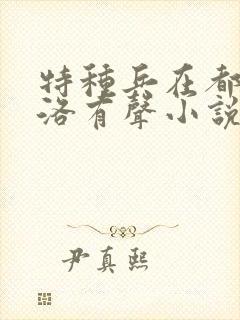 特種兵在都
洛有聲小說
尹真熙